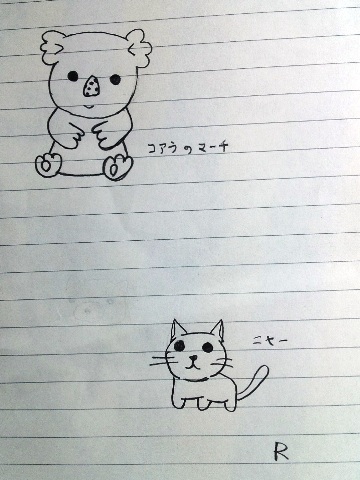 コアラのマーチ
ニャー
R